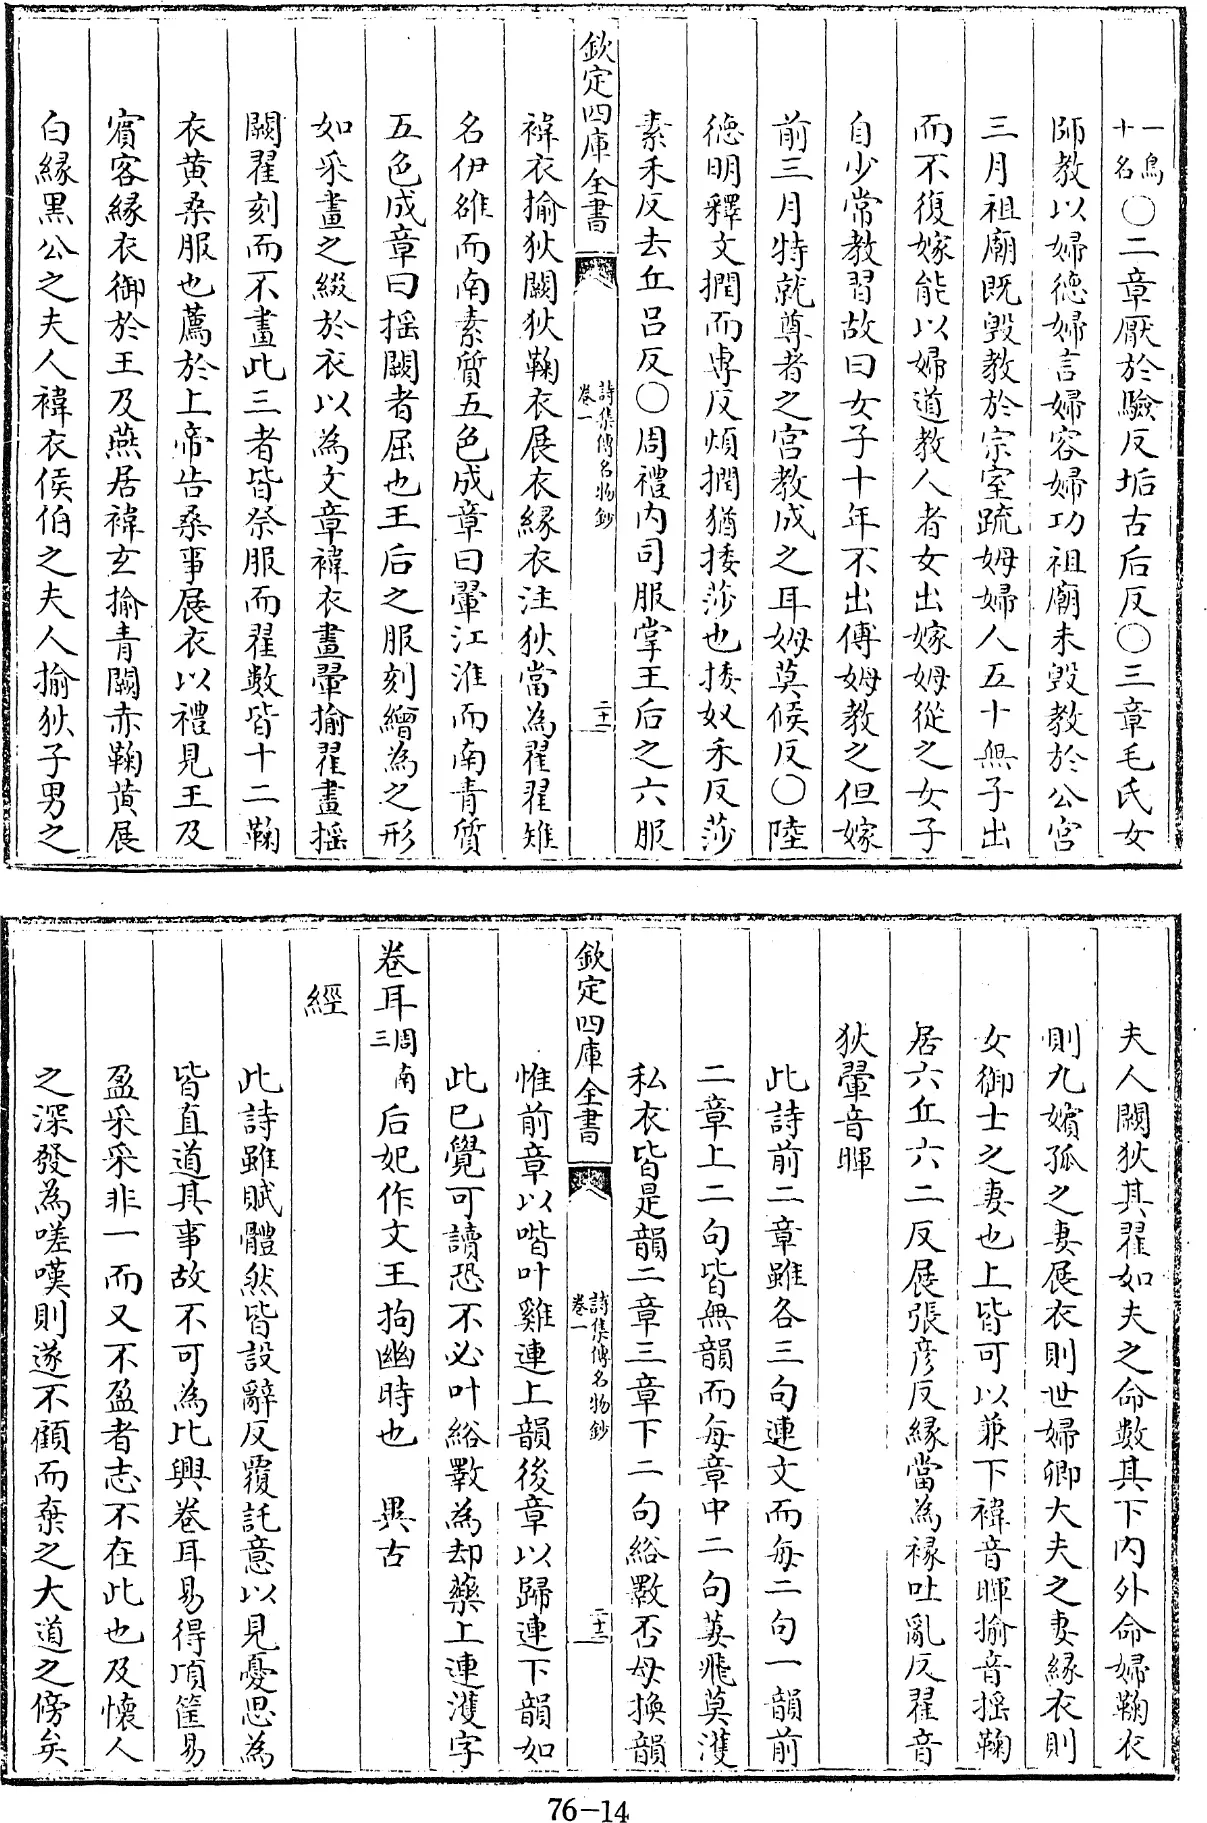 一鳥十名〇二章厭於驗反垢古后反〇三章毛氏女
師教以婦德婦言婦容婦功祖廟未毀教於公宫
三月祖廟既毀教於宗室疏姆婦人五十無子出
而不復嫁能以婦道教人者女出嫁姆從之女子
自少常教習故曰女子十年不出傅姆教之但嫁
前三月特就尊者之宫教成之耳姆莫候反〇陸
徳明釋文撋而専反煩撋猶捼莎也捼奴禾反莎
素禾反去丘呂反〇周禮内司服掌王后之六服
欽定四庫全書
詩集傳名物鈔
卷一
二十二
褘衣揄狄闕狄鞠衣展衣緣衣注狄當為翟翟雉
名伊雒而南素質五色成章曰翬江淮而南青質
五色成章曰揺闕者屈也王后之服刻繒為之形
如采畫之綴於衣以為文章褘衣畫翬揄翟畫揺
闕翟刻而不畫此三者皆祭服而翟數皆十二鞠
衣黄桑服也薦於上帝告桑事展衣以禮見王及
賓客緣衣御於王及燕居褘玄揄青闕赤鞠黄展
白緣黒公之夫人褘衣侯伯之夫人揄狄子男之
夫人闕狄其翟如夫之命數其下内外命婦鞠衣
則九嬪孤之妻展衣則世婦卿大夫之妻緣衣則
女御士之妻也上皆可以兼下褘音暉揄音揺鞠
居六丘六二反展張彦反緣當為褖吐亂反翟音
狄翬音暉
此詩前二章雖各三句連文而每二句一韻前
二章上二句皆無韻而每章中二句萋飛莫濩
私衣皆是韻二章三章下二句綌斁否母換韻
欽定四庫全書
詩集傳名物鈔
卷一
二十三
惟前章以喈叶雞連上韻後章以歸連下韻如
此已覺可讀恐不必叶綌斁為却藥上連濩字
卷耳周南三后妃作文王拘幽時也 異古
經
此詩雖賦體然皆設辭反覆託意以見憂思為
皆直道其事故不可為比興卷耳易得頃筐易
盈采采非一而又不盈者志不在此也及懷人
之深發為嗟嘆則遂不顧而棄之大道之傍矣
76-14